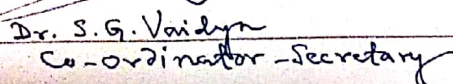 Dr. S. G. Vaidya
Co-ordinator - Secretary